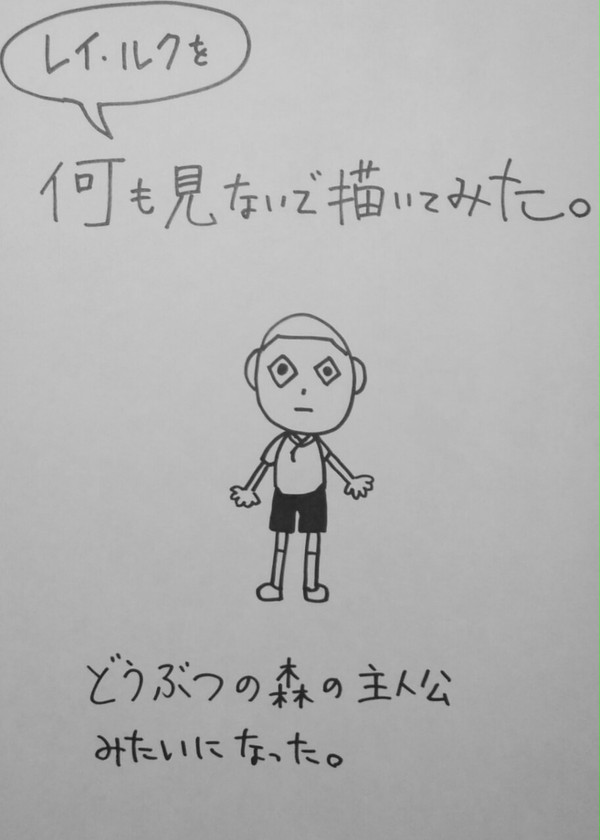 レイ・ルクを
何も見ないで描いてみた。
どうぶつの森の主人公
みたいになった。